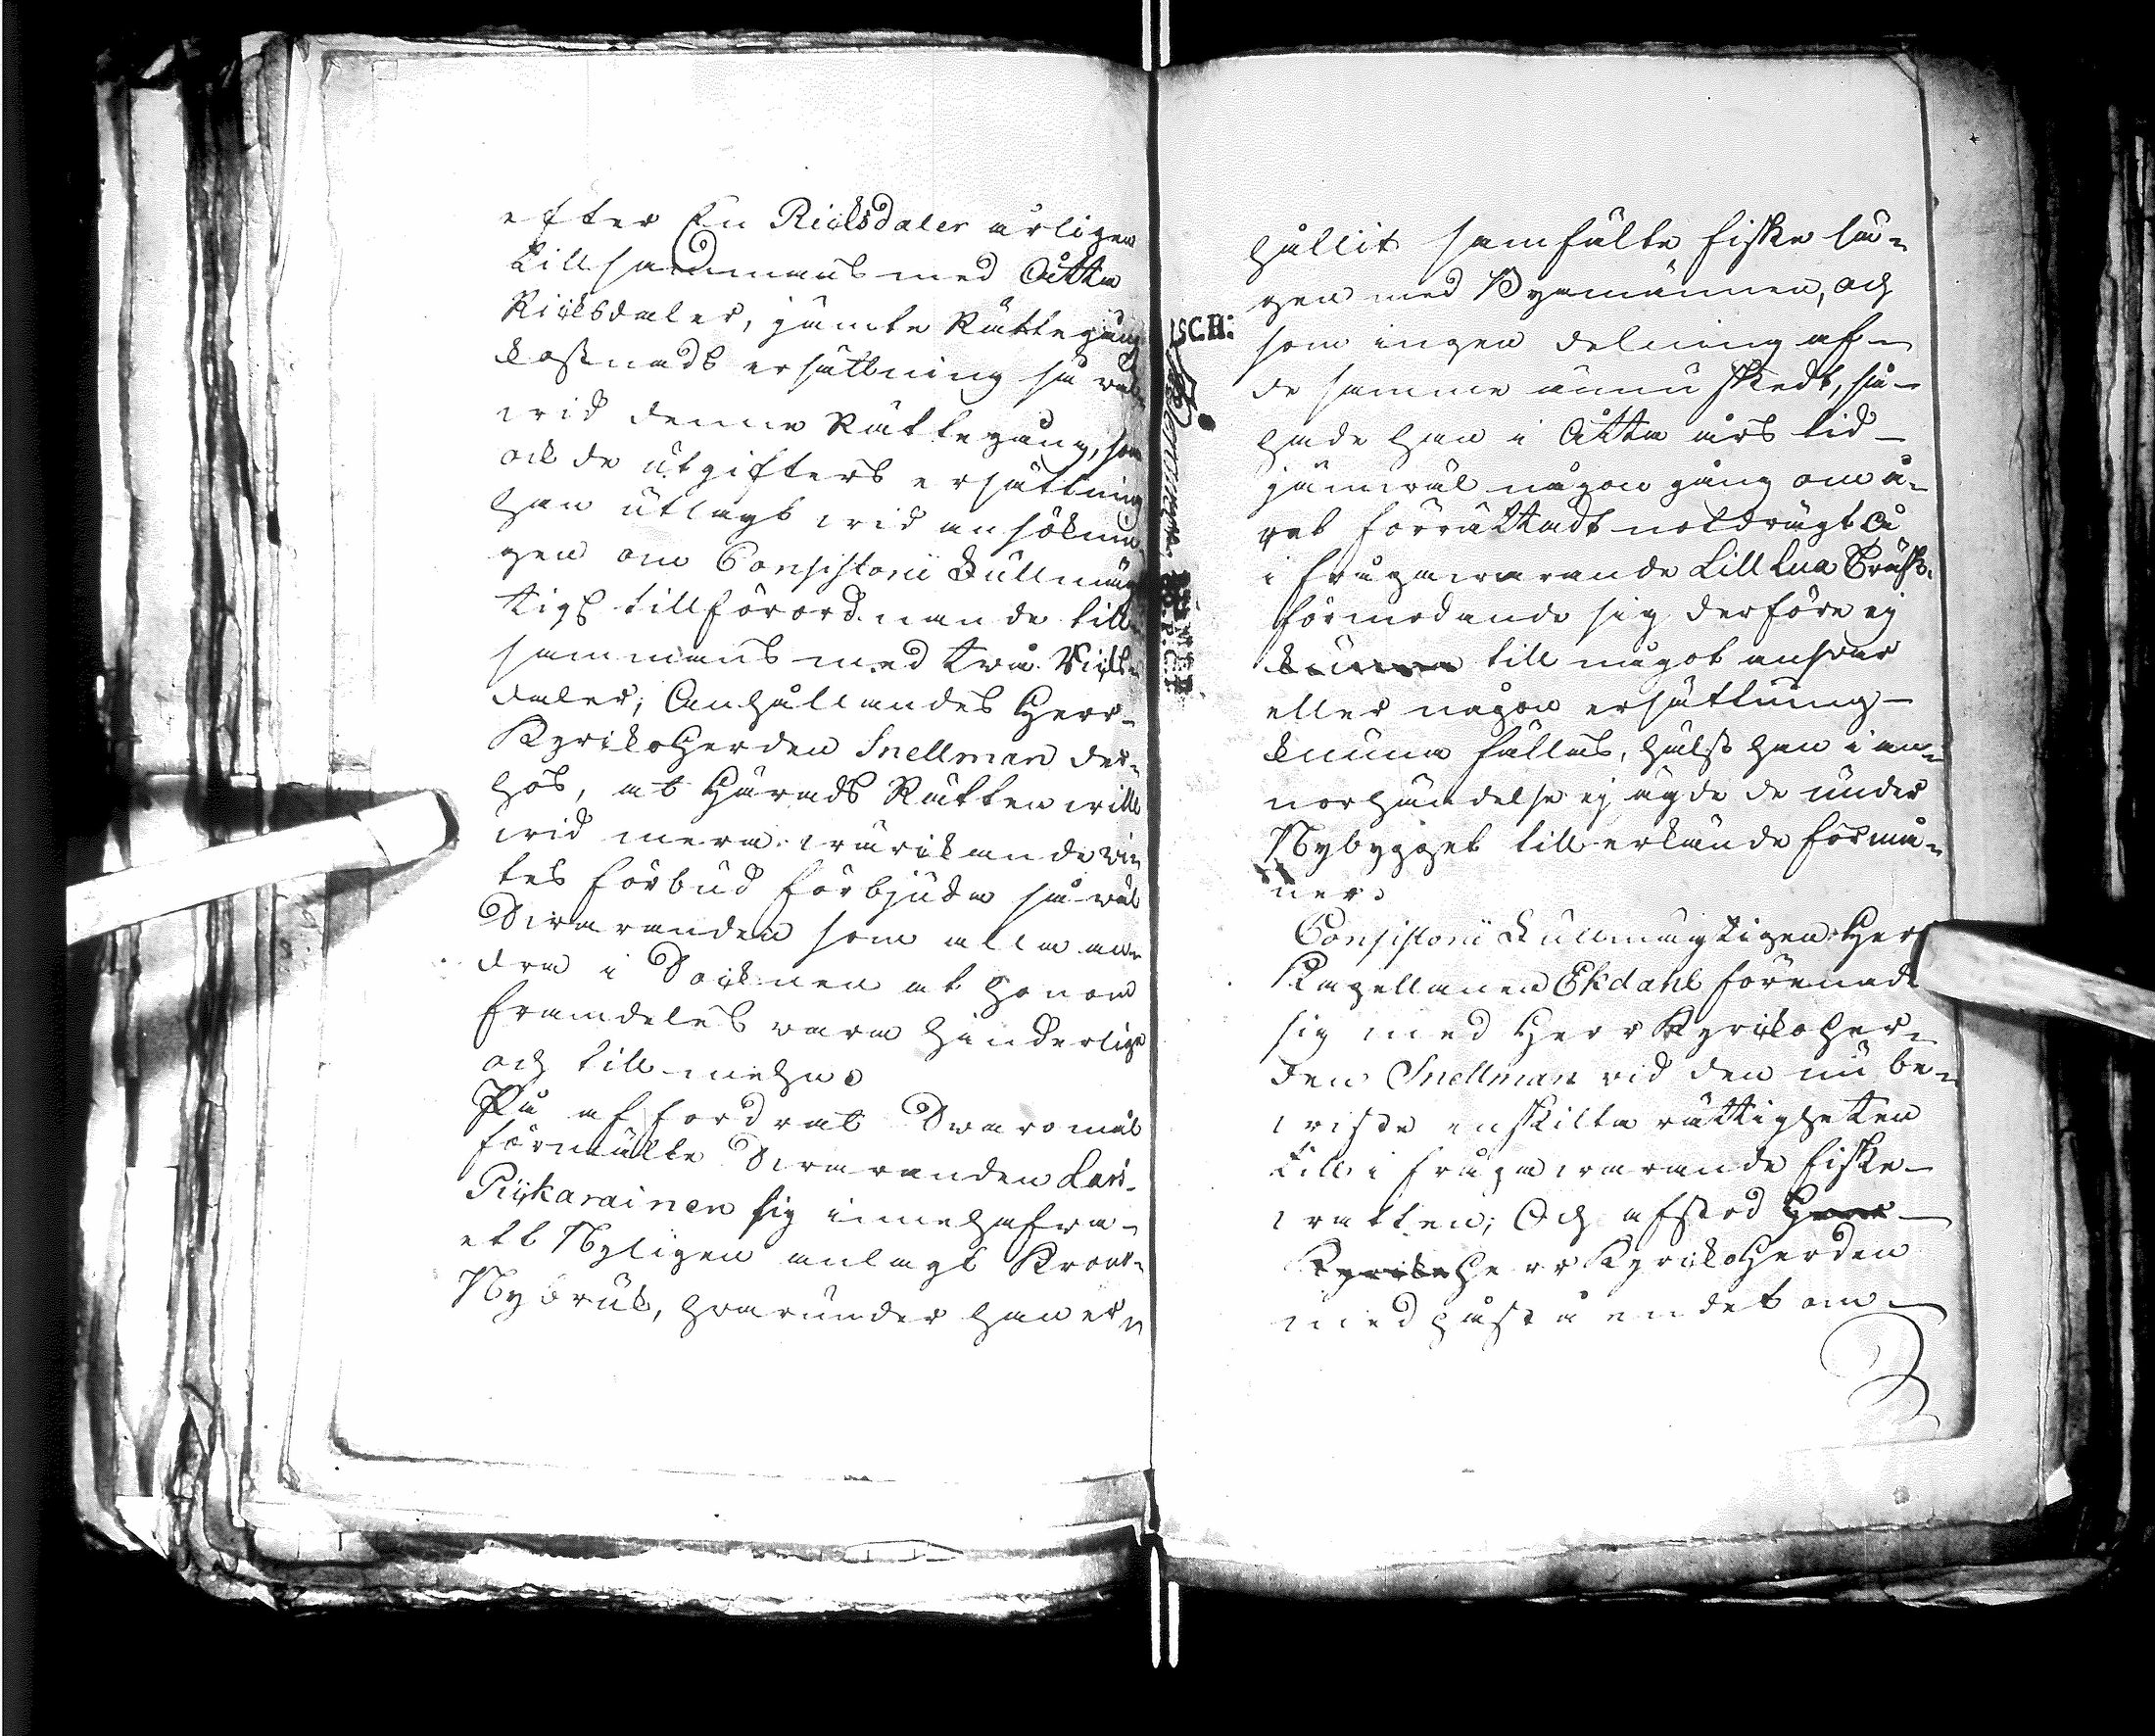 efter En Ricksdaler årligen
tillsammans med Otta
Ricksdaler, jämte Rättegång
kostnads ersättning så wäl
wid denne Rättegång, som
ock de utgifters ersättning
han utlagt wid ansöknin
gen om Consistorii Fullmäg
tigs tillförordnande till-
sammans med två Ricks-
daler; Anhållandes Herr
Kyrckoherden Snellman der-
hos, at Härads Rätten wille
wid mera wärckande wi-
tes förbud förbjuda så wäl
Swaranden som alla an-
dra i Socknen at honom
framdeles wara hinderlige
och till mehn.
På affordrat Swaromål
förmälte Swaranden Lars
Piickarainen sig innehafwa
ett Nyligen anlagt Krono-
Nybruk, hwarunder han er-
hållit samfälte fiske lä-
gen med Byamännen, och
som ingen delning af
de samme ännu skedt, så
hade han i Otta års tid
jämwäl någon gång om å-
ret förrättadt notdrägt å
i frågawarande Lill Lua Träsk,
förmodande sig derföre ej
till något answar
eller någon ersättning
kunna fällas, hälst han i an-
nor händelse ej ägde de under
Nybygget tillerkände förmå-
ner.
Consistorii Fullmägtigen Herr
Kapellanen Ekdahl förenade
sig med Herr Kyrckoher-
den Snellman wid den nu be-
wiste enskilta rättigheten
till i frågawarande fiske
watten; Och afstod Herr
Kyrcko Herr Kyrckoherden
med påståendet om